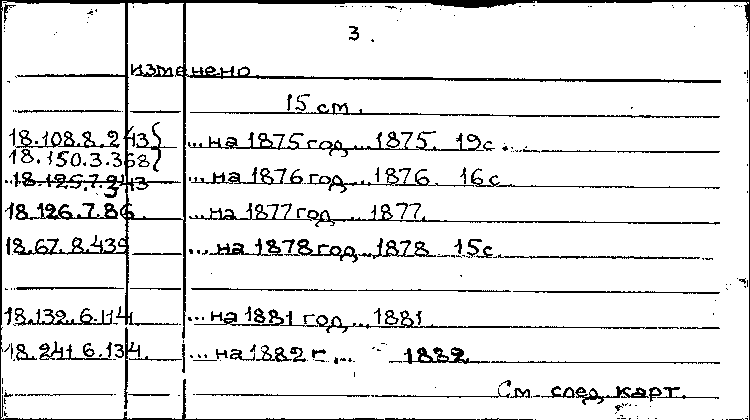 3.
изменено
15 см.
18.108.8.243} ...на 1875 год...1875. 19с.
18.150.3.368}
18.125.7.243 ...на 1876 год...1876. 16с
18.126.7.86. ...на 1877 год...1877.
18.67.8.439 ...на 1878 год...1878 15с.
18.132.6.114 ...на 1881 год...1881.
18.241.6.134. ...на 1882 г... 1882.
См. след. карт.